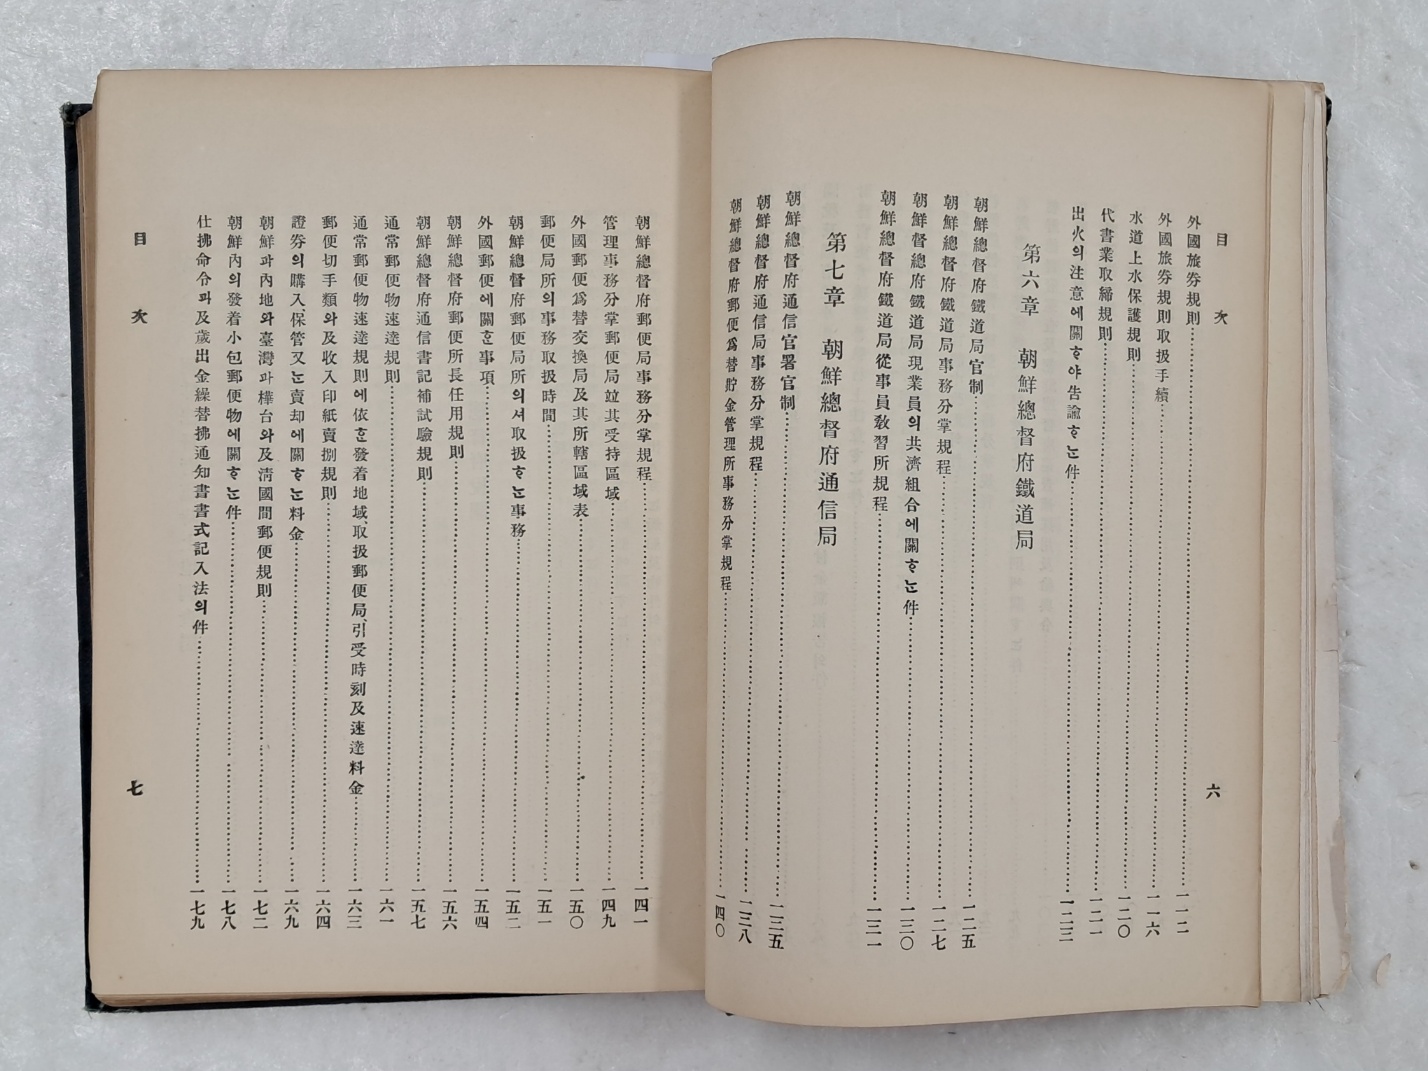 目次 六
外國旅劵規則 一一二
外國旅劵規則取扱手續 一一六
水道上水保護規則 一二〇
代書業取締規則 一二一
出火의注意에關ᄒᆞ야告諭ᄒᆞᄂᆞᆫ件 一二三
第六章 朝鮮總督府鐵道局
朝鮮總督府鐵道局官制 一二五
朝鮮總督府鐵道局事務分掌規程 一二七
朝鮮督總府鐵道局現業員의共濟組合에關ᄒᆞᄂᆞᆫ件 一三〇
朝鮮總督府鐵道局從事員敎習所規程 一三一
第七章 朝鮮總督府通信局
朝鮮總督府通信官署官制 一三五
朝鮮總督府通信局事務分掌規程 一三八
朝鮮總督府郵便爲替貯金管理所事務分掌規程 一四〇
朝鮮總督府郵便局事務分掌規程 一四一
管理事務分掌郵便局竝其受持區域 一四九
外國郵便爲替交換局及其所轄區域表 一五〇
郵便局所의事務取扱時間 一五一
朝鮮總督府郵便局所의셔取扱ᄒᆞᄂᆞᆫ事務 一五二
外國郵便에關ᄒᆞᆫ事項 一五四
朝鮮總督府郵便所長任用規則 一五六
朝鮮總督府通信書記補試驗規則 一五七
通常郵便物速達規則 一六一
通常郵便物速達規則에依ᄒᆞᆫ發着地域取扱郵便局、引受時刻及速達料金 一六三
郵便切手類와及收入印紙賣捌規則 一六四
證劵의購入、保管又ᄂᆞᆫ賣却에關ᄒᆞᄂᆞᆫ料金 一六九
朝鮮과內地와臺灣과樺台와及淸國間郵便規則 一七二
朝鮮內의發着小包郵便物에關ᄒᆞᄂᆞᆫ件 一七八
仕拂命令과及歲出金繰替拂通知書書式記入法의件 一七九
目次 七